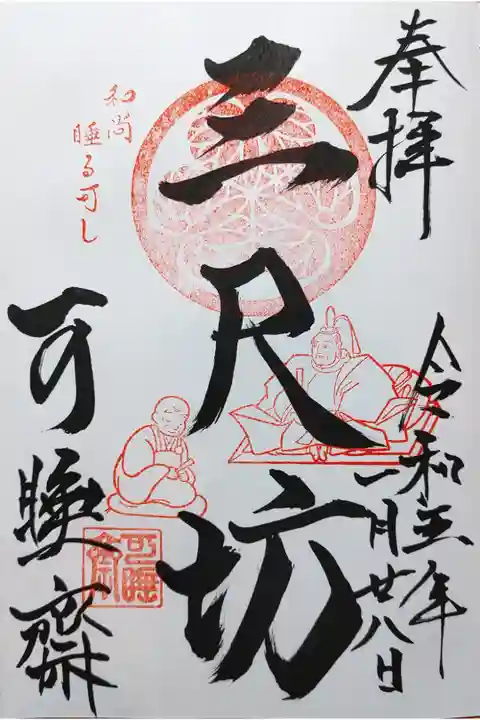 奉拝
令和五年
一月廿八日
三尺坊
和尚
睡る可し
可睡齋
可睡齋